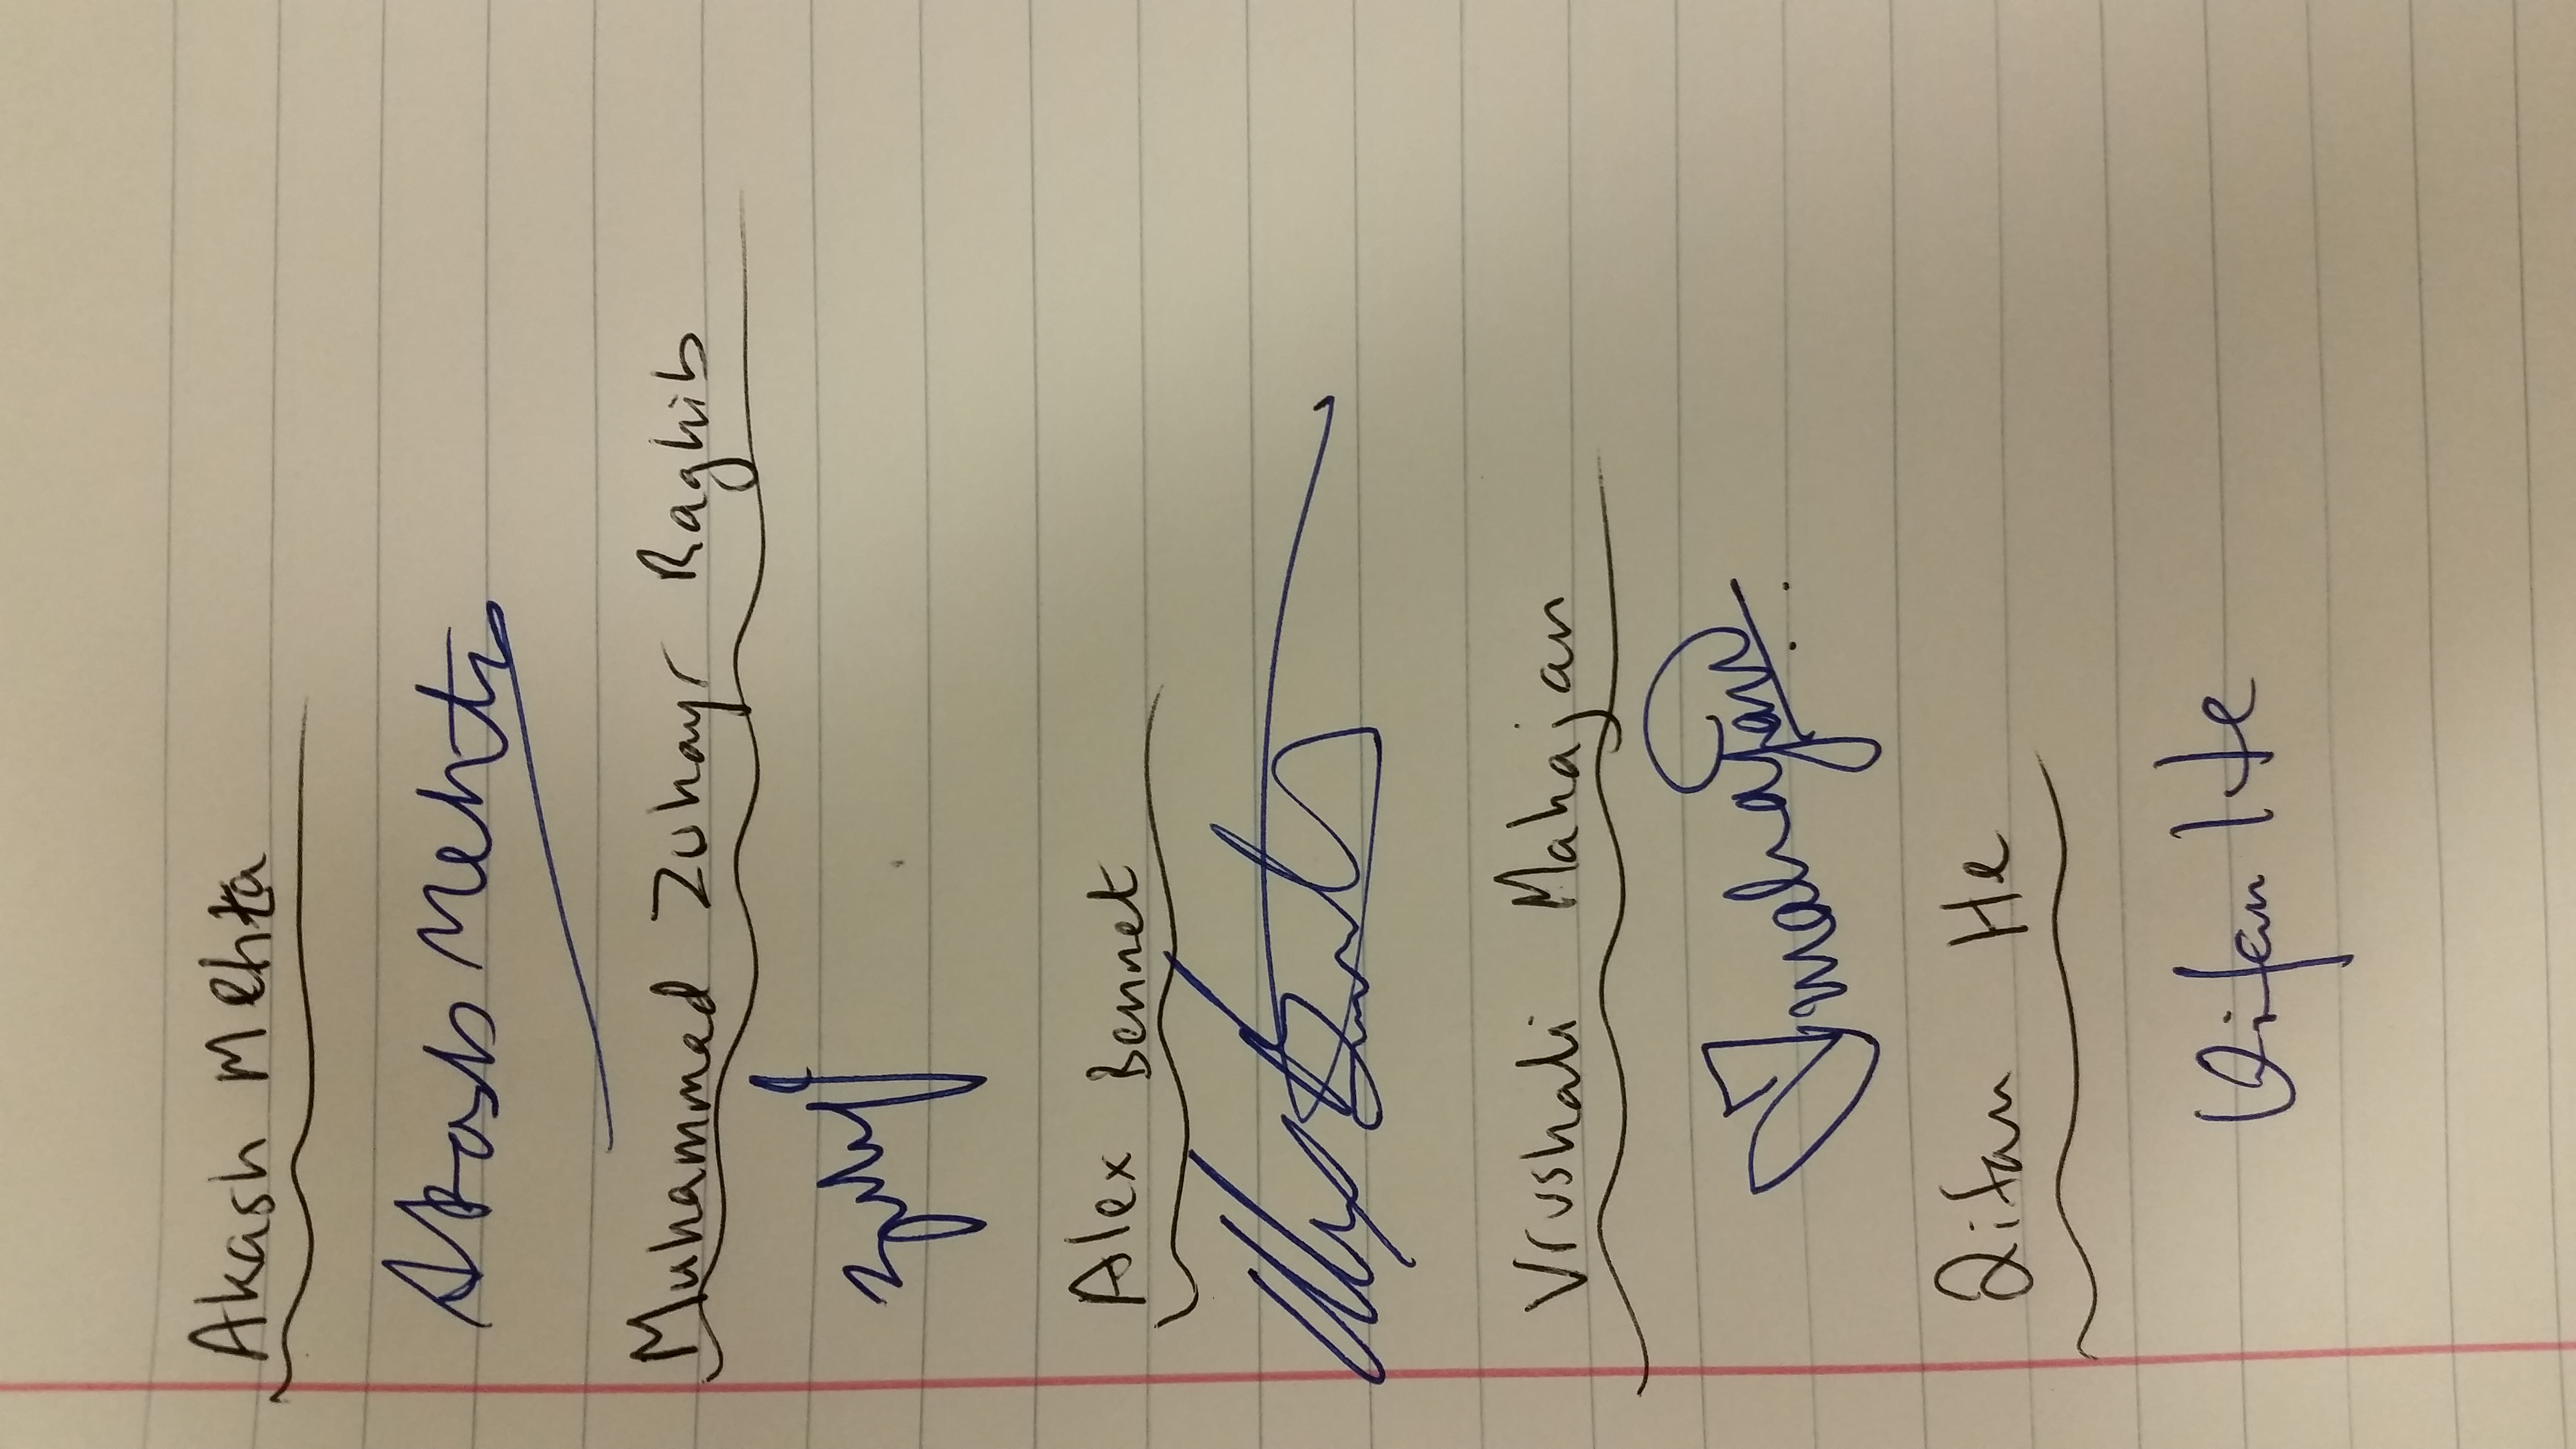 Akash Mehta
Akash Mehta
Muhammad Zuhayr Raghib
Zuhayr
Alex Bennet
Alex Bennet
Vrushali Mahajan
Vmahajan
Qifan He
Qifan He